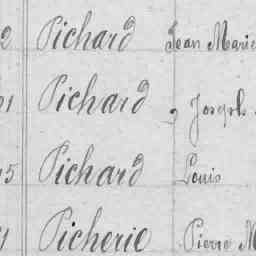 2 Pichard Jean Marie
21 Pichard Joseph
5 Pichard Louis
1 Picherie Pierre M